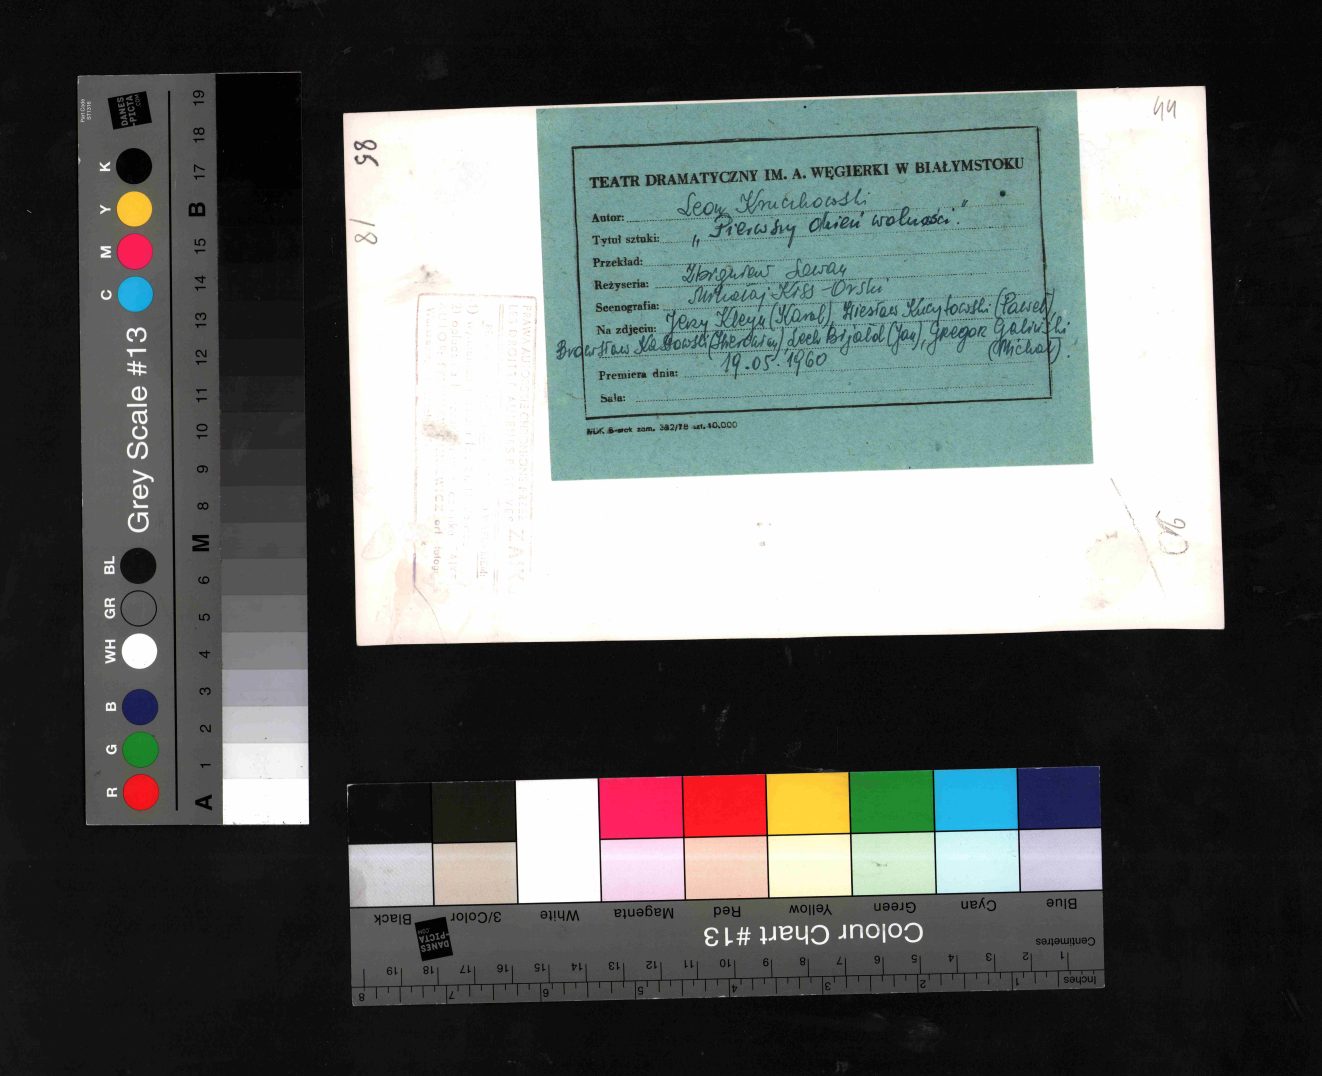 TEATR DRAMATYCZNY IM. A. WĘGIERKI W BIAŁYMSTOKU
Autor: Leon Kruczkowski
Tytuł sztuki: „Pierwszy dzień wolności."
Przekład:
Reżyseria: Zbigniew Sawan
Scenografia: Mikołaj Kiss-Orski
Na zdjęciu: Jerzy Kleyn (Karol), Wiesław (Paweł)
Bronisław (Hieronim), Lech (Jan), Gregorz Galiński
(Michał).
Premiera dnia: 19.05.1960
Sala:
zam. 382/78 szt. 10.000
44
85
18
Grey Scale #13
DANES
-PICTA
.COM
R G B WH GR BL C M Y K
A 1 2 3 4 5 6 M 8 9 10 11 12 13 14 15 B 17 18 19
Blue Cyan Green Yellow Red Magenta White 3/Color Black
Colour Chart #13
DANES
-PICTA
.COM
Centimetres
1 2 3 4 5 6 7 8 9 10 11 12 13 14 15 16 17 18 19
Inches
1 2 3 4 5 6 7 8